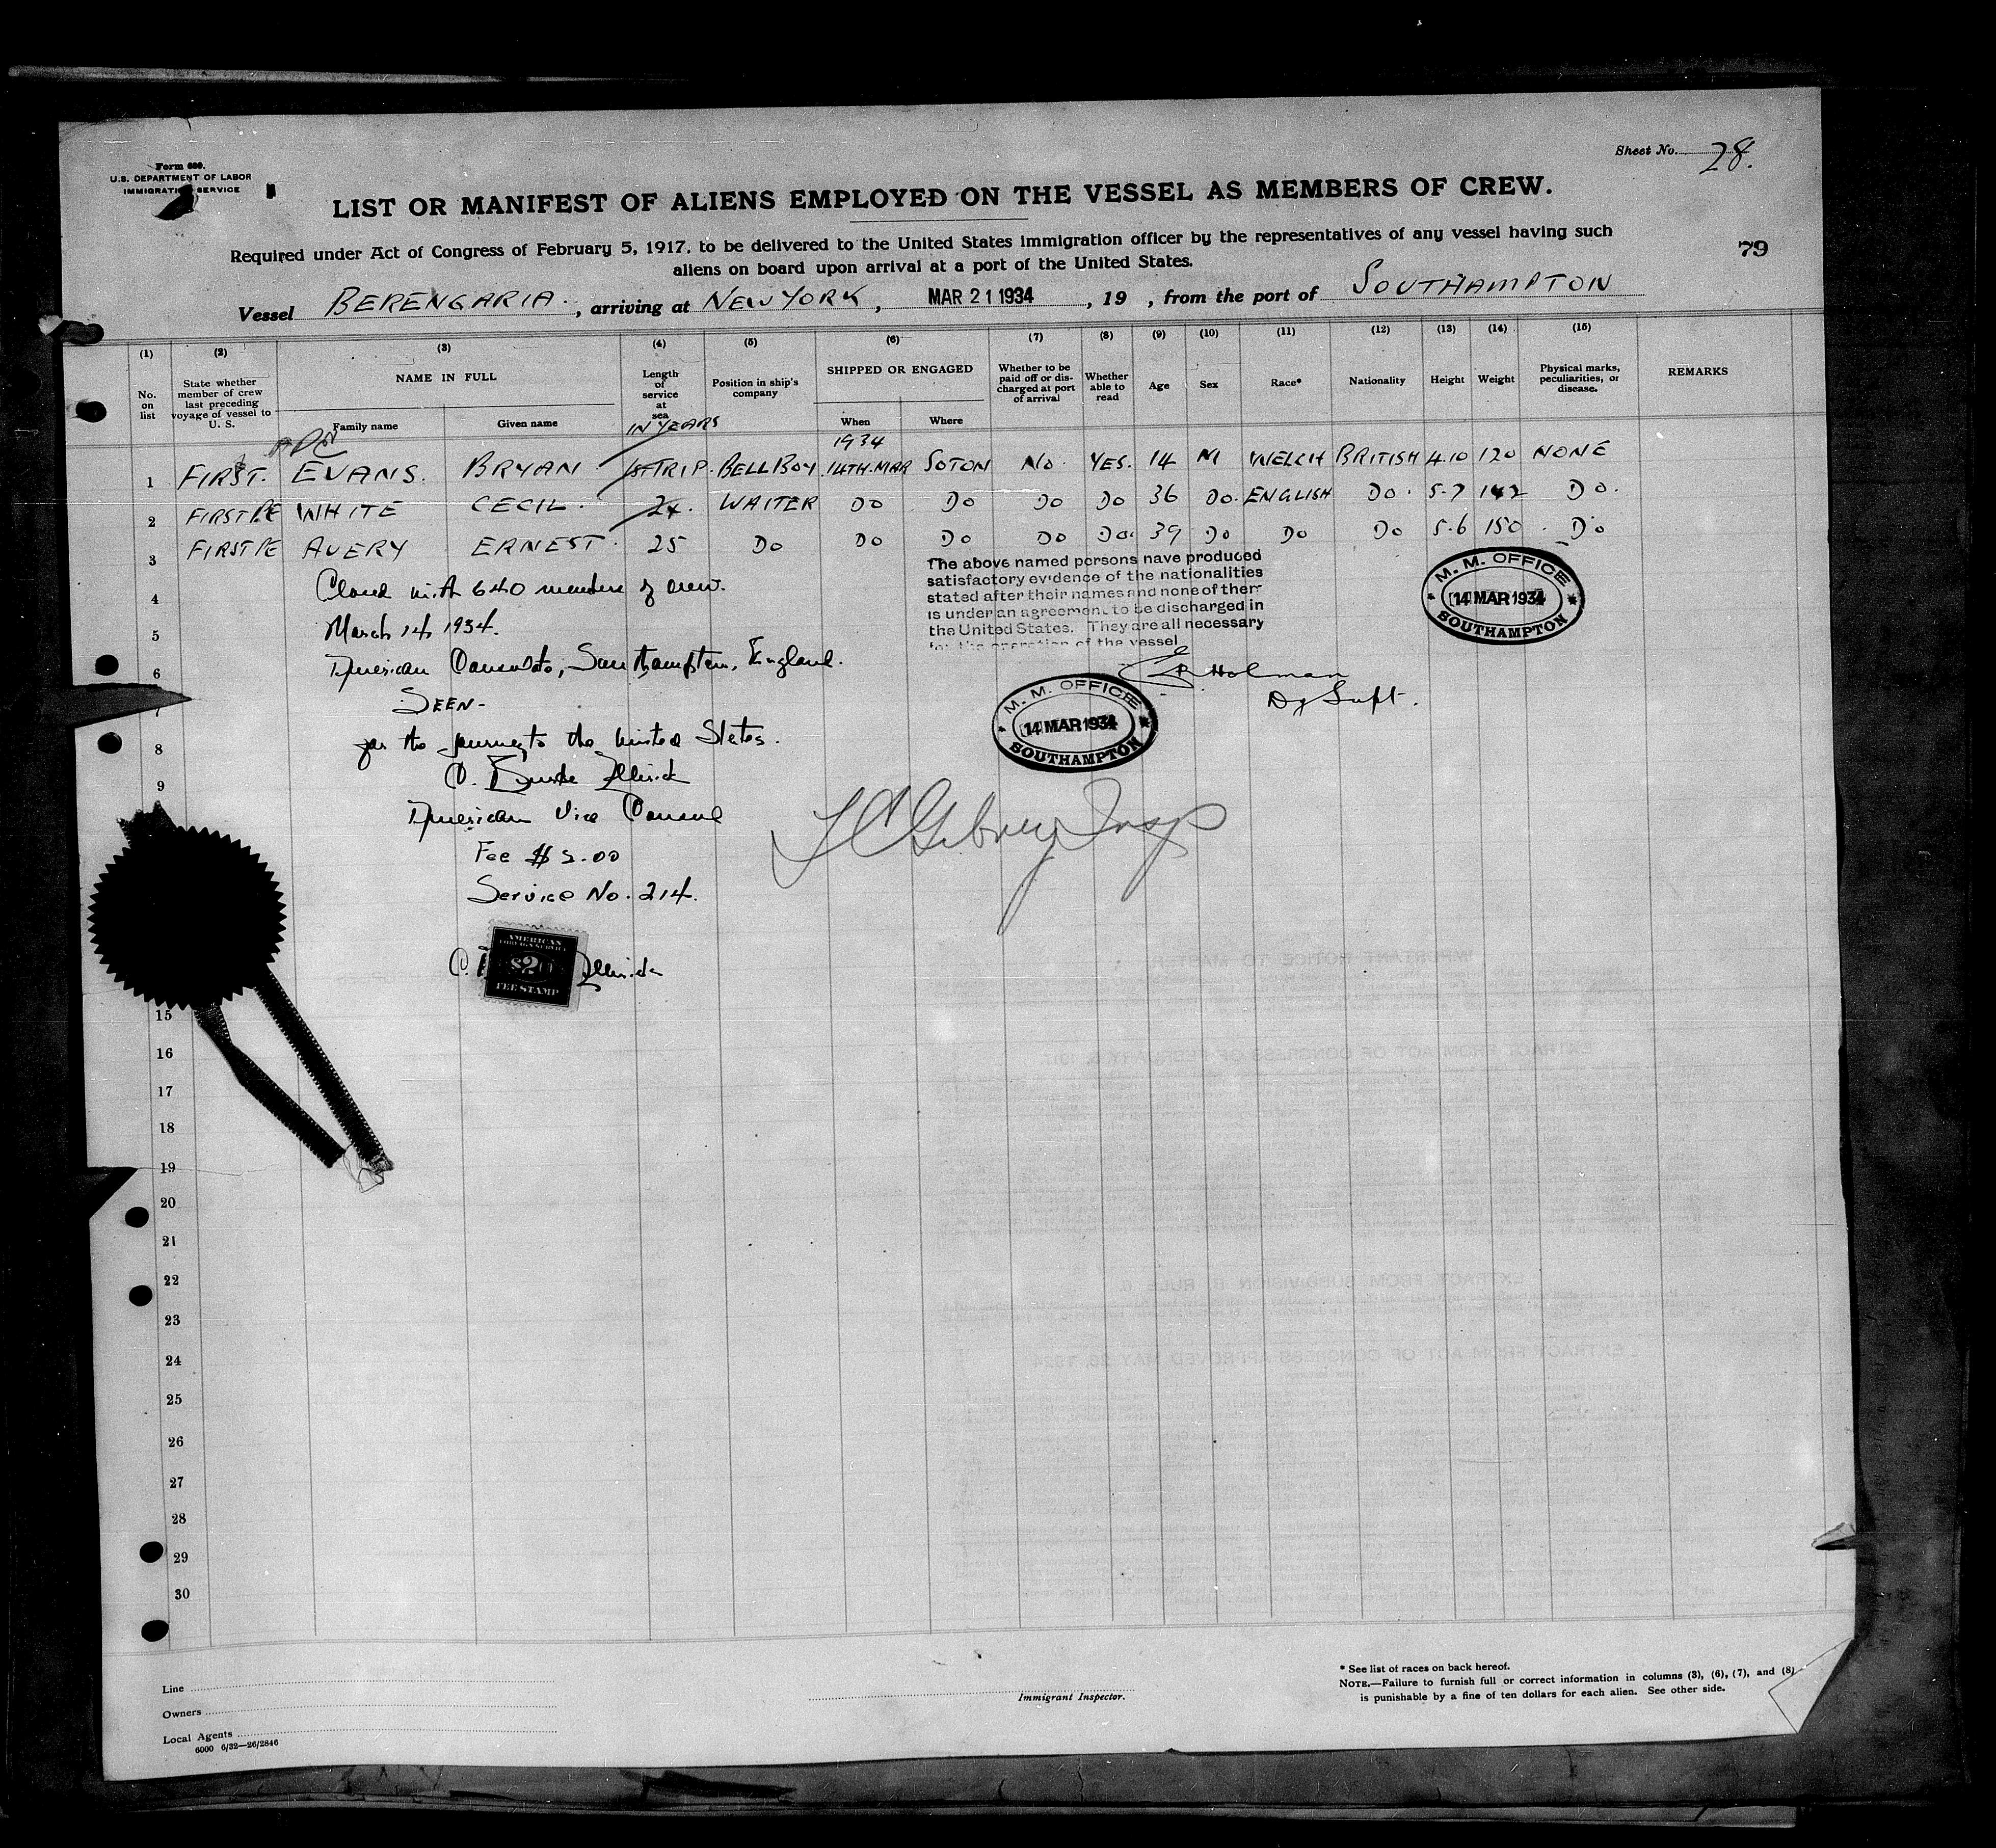 Form 680.
U.S. DEPARTMENT OF LABOR
IMMIGRATION SERVICE
Sheet No. 28.
LIST OR MANIFEST OF ALIENS EMPLOYED ON THE VESSEL AS MEMBERS OF CREW.
Required under Act of Congress of February 5, 1917, to be delivered to the United States immigration officer by the representatives of any vessel having such
aliens on board upon arrival at a port of the United States.
79
Vessel BERENGARIA. , arriving at NEW YORK , MAR 21 1934 , 19 , from the port of SOUTHAMPTON
(1) (2) (3) (4) (5) (6) (7) (8) (9) (10) (11) (12) (13) (14) (15)
No. on list State whether member of crew last preceding voyage of vessel to U. S. NAME IN FULL Family name Given name Length of service at sea IN YEARS Position in ship's company SHIPPED OR ENGAGED When Where Whether to be paid off or discharged at port of arrival Whether able to read Age Sex Race* Nationality Height Weight Physical marks, peculiarities, or disease. REMARKS
1934
1 FIRST. EVANS. BRYAN 1ST TRIP. BELL BOY. 14TH.MAR SOTON NO. YES. 14 M WELCH BRITISH 4.10 120 NONE
2 FIRST WHITE CECIL. 24. WAITER DO DO DO DO 36 DO. ENGLISH DO. 5.7 142 DO.
3 FIRST AVERY ERNEST. 25 DO DO DO DO DO. 39 DO DO DO 5.6 150 DO
The above named persons have produced
satisfactory evidence of the nationalities
stated after their names and none of them
is under an agreement to be discharged in
the United States. They are all necessary
for the operation of the vessel
M. M. OFFICE
14 MAR 1934
SOUTHAMPTON
Holman
Dy Supt.
M. M. OFFICE
14 MAR 1934
SOUTHAMPTON
4 Closed with 640 members of crew.
5 March 14, 1934.
6 American Consulate, Southampton, England.
7 SEEN-
8 for the journey to the United States.
9
American Vice Consul
Fee $2.00
Service No. 214.
AMERICAN
FOREIGN SERVICE
$2
FEE STAMP
15
16
17
18
19
20
21
22
23
24
25
26
27
28
29
30
Line
Owners
Local Agents
6000 6/32—26/2846
Immigrant Inspector.
* See list of races on back hereof.
NOTE.—Failure to furnish full or correct information in columns (3), (6), (7), and (8)
is punishable by a fine of ten dollars for each alien. See other side.